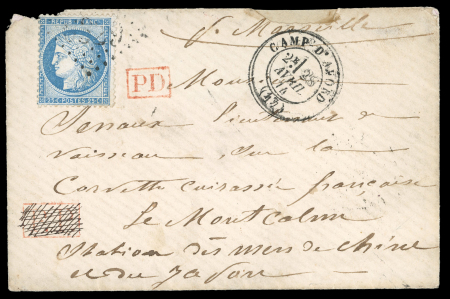 REPUB. FRANC.
25 C POSTES 25 C
v. Marseille
CAMP D'AVORD
2E 28
AVRIL
74
PD
Monsieur
lieutenant de
vaisseau, sur la
Corvette cuirassée française
Le Montcalm
Station des mers de Chine
et du Japon